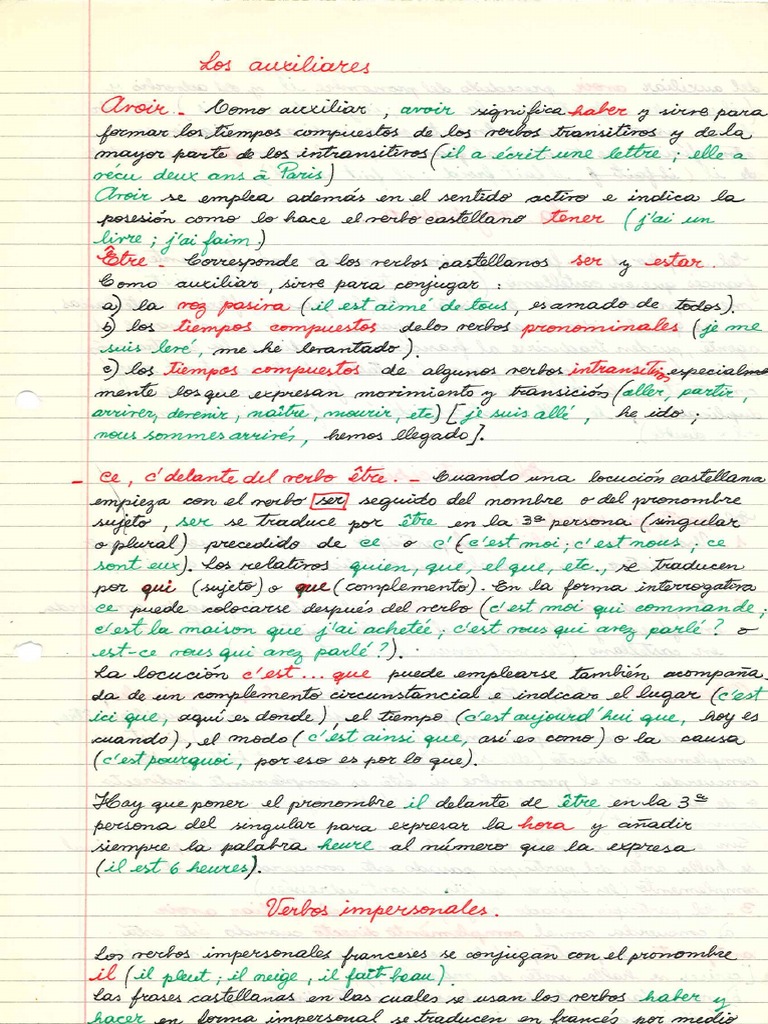 Los auxiliares
Avoir.- Como auxiliar, avoir significa haber y sirve para
formar los tiempos compuestos de los verbos transitivos y de la
mayor parte de los intransitivos (il a écrit une lettre ; elle a
vécu deux ans à Paris)
Avoir se emplea además en el sentido activo e indica la
posesión como lo hace el verbo castellano tener (j'ai un
livre ; j'ai faim.)
Être.- Corresponde a los verbos castellanos ser y estar.
Como auxiliar, sirve para conjugar :
a) la voz pasiva (il est aimé de tous, es amado de todos).
b) los tiempos compuestos de los verbos pronominales (je me
suis levé, me he levantado).
c) los tiempos compuestos de algunos verbos intransitivos especial
mente los que expresan movimiento y transición (aller, partir,
arriver, devenir, naître, mourir, etc) [je suis allé, he ido ;
nous sommes arrivés, hemos llegado].
- ce, c' delante del verbo être.- Cuando una locución castellana
empieza con el verbo ser seguido del nombre o del pronombre
sujeto, ser se traduce por être en la 3ª persona (singular
o plural) precedido de ce o c' (c'est moi ; c'est nous ; ce
sont eux). Los relativos quien, que, el que, etc., se traducen
por qui (sujeto) o que (complemento). En la forma interrogativa
ce puede colocarse después del verbo (c'est moi qui commande ;
c'est la maison que j'ai achetée ; c'est vous qui avez parlé ? o
est-ce vous qui avez parlé ?).
La locución c'est ... que puede emplearse también acompaña-
da de un complemento circunstancial e indicar el lugar (c'est
ici que, aquí es donde), el tiempo (c'est aujourd'hui que, hoy es
cuando), el modo (c'est ainsi que, así es como) o la causa
(c'est pourquoi, por eso es por lo que).
Hay que poner el pronombre il delante de être en la 3ª
persona del singular para expresar la hora y añadir
siempre la palabra heure al número que la expresa
(il est 6 heures).
Verbos impersonales.
Los verbos impersonales franceses se conjugan con el pronombre
il (il pleut ; il neige, il fait beau)
Las frases castellanas en las cuales se usan los verbos haber y
hacer en forma impersonal se traducen en francés por medio